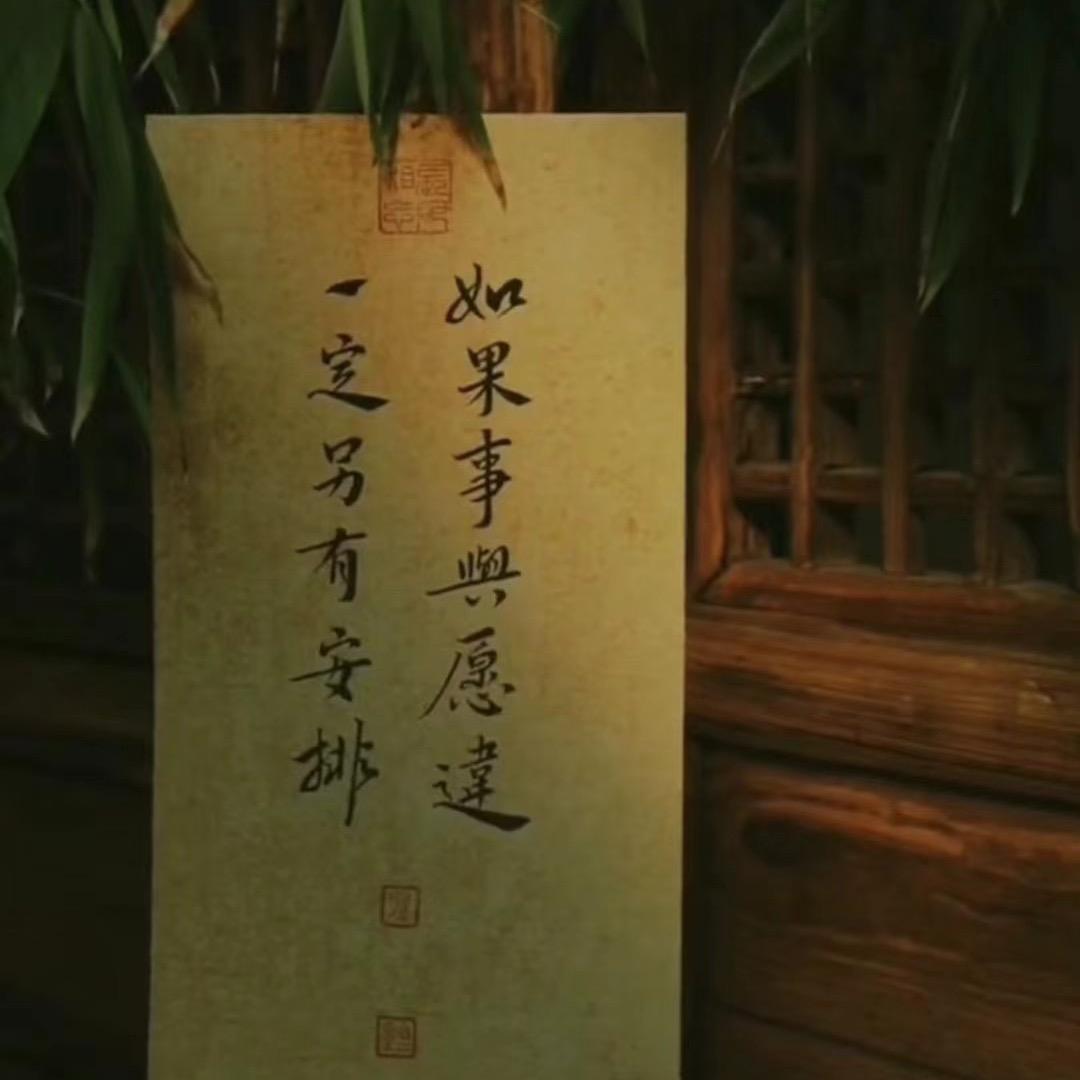 如果事與愿違
一定另有安排